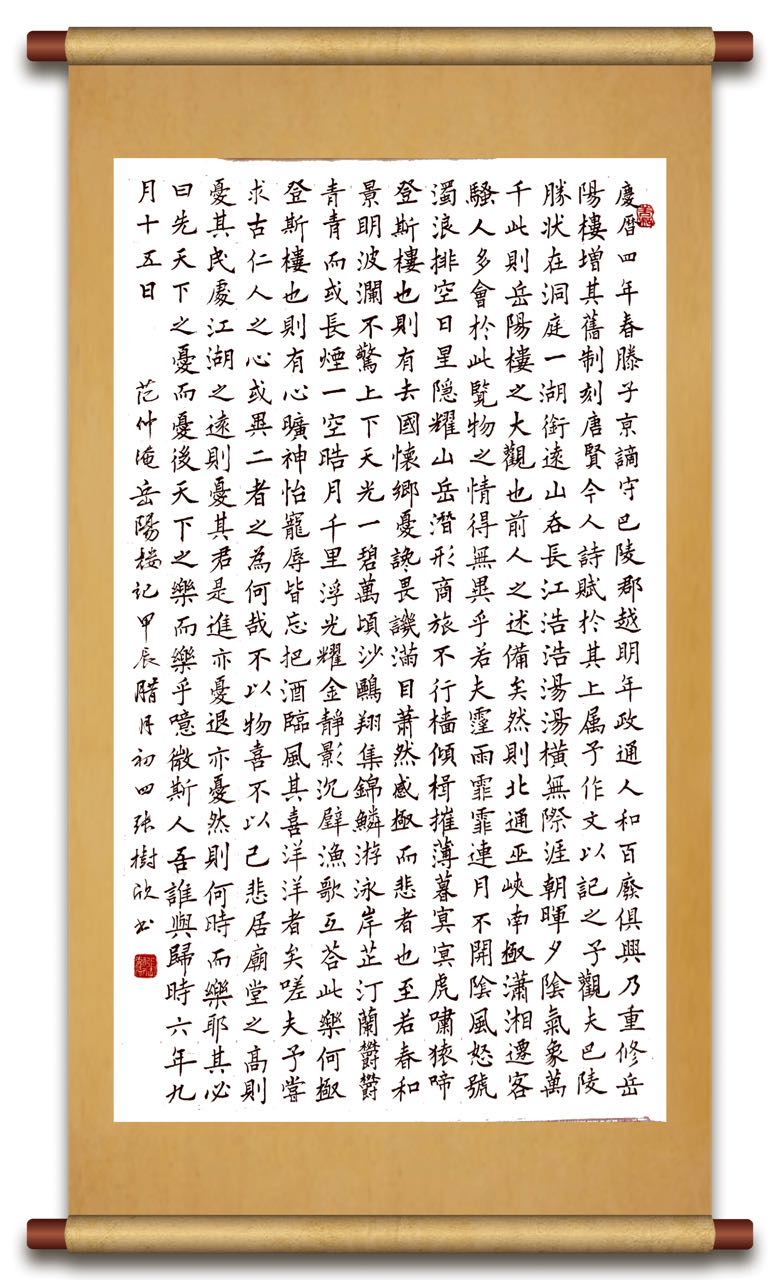 慶曆四年春滕子京謫守巴陵郡越明年政通人和百廢俱興乃重修岳
陽樓增其舊制刻唐賢今人詩賦於其上属予作文以記之予觀夫巴陵
勝状在洞庭一湖銜遠山吞長江浩浩湯湯橫無際涯朝暉夕陰氣象萬
千此則岳陽樓之大觀也前人之述備矣然則北通巫峽南極瀟湘遷客
騷人多會於此覽物之情得無異乎若夫霪雨霏霏連月不開陰風怒號
濁浪排空日星隐耀山岳潛形商旅不行檣傾楫摧薄暮冥冥虎嘯猿啼
登斯樓也則有去國懷鄉憂讒畏譏滿目蕭然感極而悲者也至若春和
景明波瀾不驚上下天光一碧萬頃沙鷗翔集錦鱗游泳岸芷汀蘭鬱鬱
青青而或長煙一空晧月千里浮光耀金靜影沉璧漁歌互荅此樂何極
登斯樓也則有心曠神怡寵辱皆忘把酒臨風其喜洋洋者矣嗟夫予嘗
求古仁人之心或異二者之為何哉不以物喜不以己悲居廟堂之高則
憂其民處江湖之遠則憂其君是進亦憂退亦憂然則何時而樂耶其必
曰先天下之憂而憂後天下之樂而樂乎噫微斯人吾誰與歸時六年九
月十五日 范仲淹岳陽楼記甲辰腊月初四張樹欣书